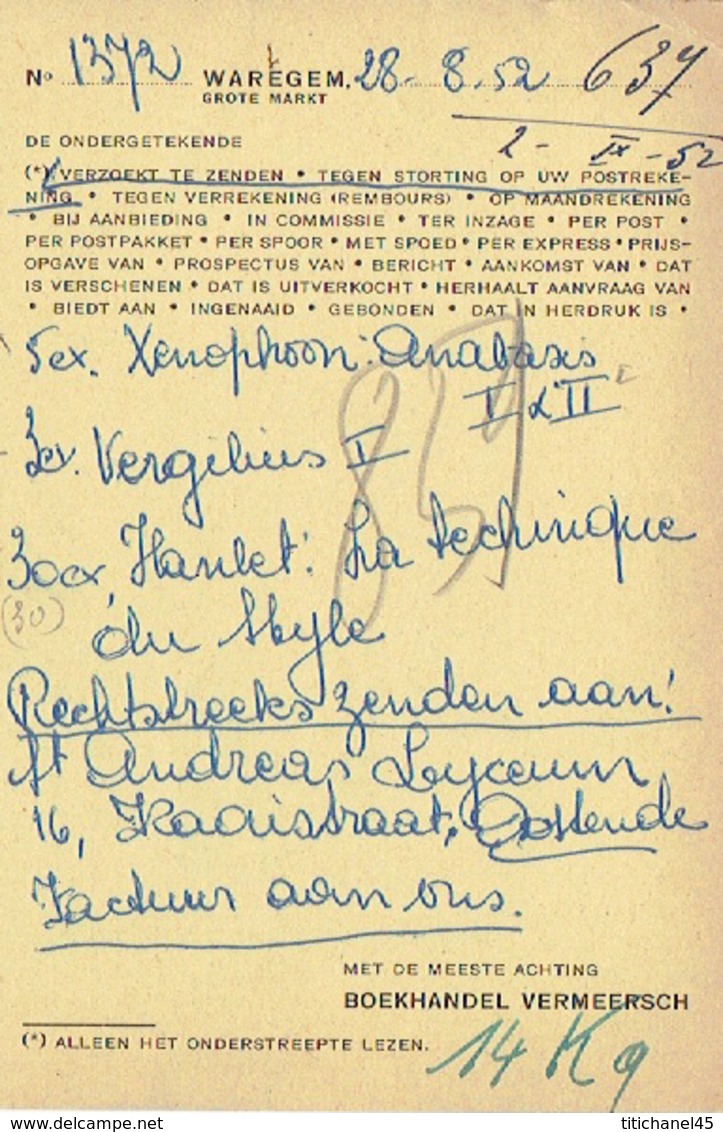 No 1372 WAREGEM, 28-8.52 637
GROTE MARKT
DE ONDERGETEKENDE 2-IX-52
(*) VERZOEKT TE ZENDEN • TEGEN STORTING OP UW POSTREKE-
NING • TEGEN VERREKENING (REMBOURS) • OP MAANDREKENING
• BIJ AANBIEDING • IN COMMISSIE • TER INZAGE • PER POST •
PER POSTPAKKET • PER SPOOR • MET SPOED • PER EXPRESS • PRIJS-
OPGAVE VAN • PROSPECTUS VAN • BERICHT • AANKOMST VAN • DAT
IS VERSCHENEN • DAT IS UITVERKOCHT • HERHAALT AANVRAAG VAN
• BIEDT AAN • INGENAAID • GEBONDEN • DAT IN HERDRUK IS •
5ex. Xenophoon: Anabasis
I & II
3ex. Vergilius I
30ex Hanlet: La technique
(30) du Style
Rechtstreeks zenden aan:
St Andreas Lyceum
16, Kaaistraat, Oostende
Factuur aan ons.
MET DE MEESTE ACHTING
BOEKHANDEL VERMEERSCH
(*) ALLEEN HET ONDERSTREEPTE LEZEN.
14 Kg
titichanel45